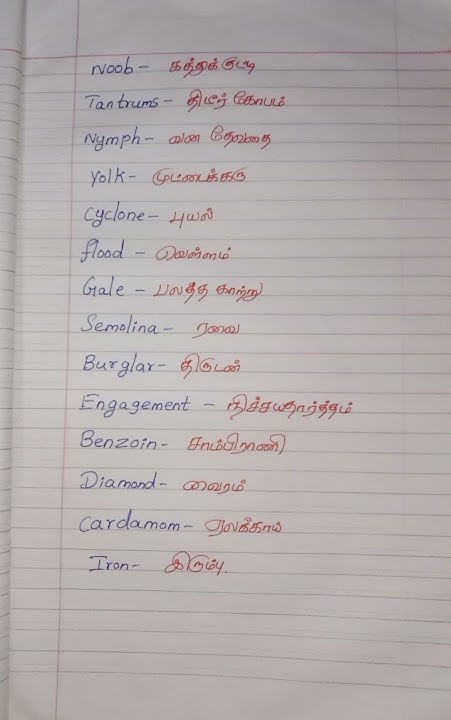 Noob - கத்துக்குட்டி
Tantrums - திடீர் கோபம்
Nymph - வன தேவதை
Yolk - முட்டைக்கரு
Cyclone - புயல்
flood - வெள்ளம்
Gale - பலத்த காற்று
Semolina - ரவை
Burglar - திருடன்
Engagement - நிச்சயதார்த்தம்
Benzoin - சாம்பிராணி
Diamond - வைரம்
Cardamom - ஏலக்காய்
Iron - இரும்பு.